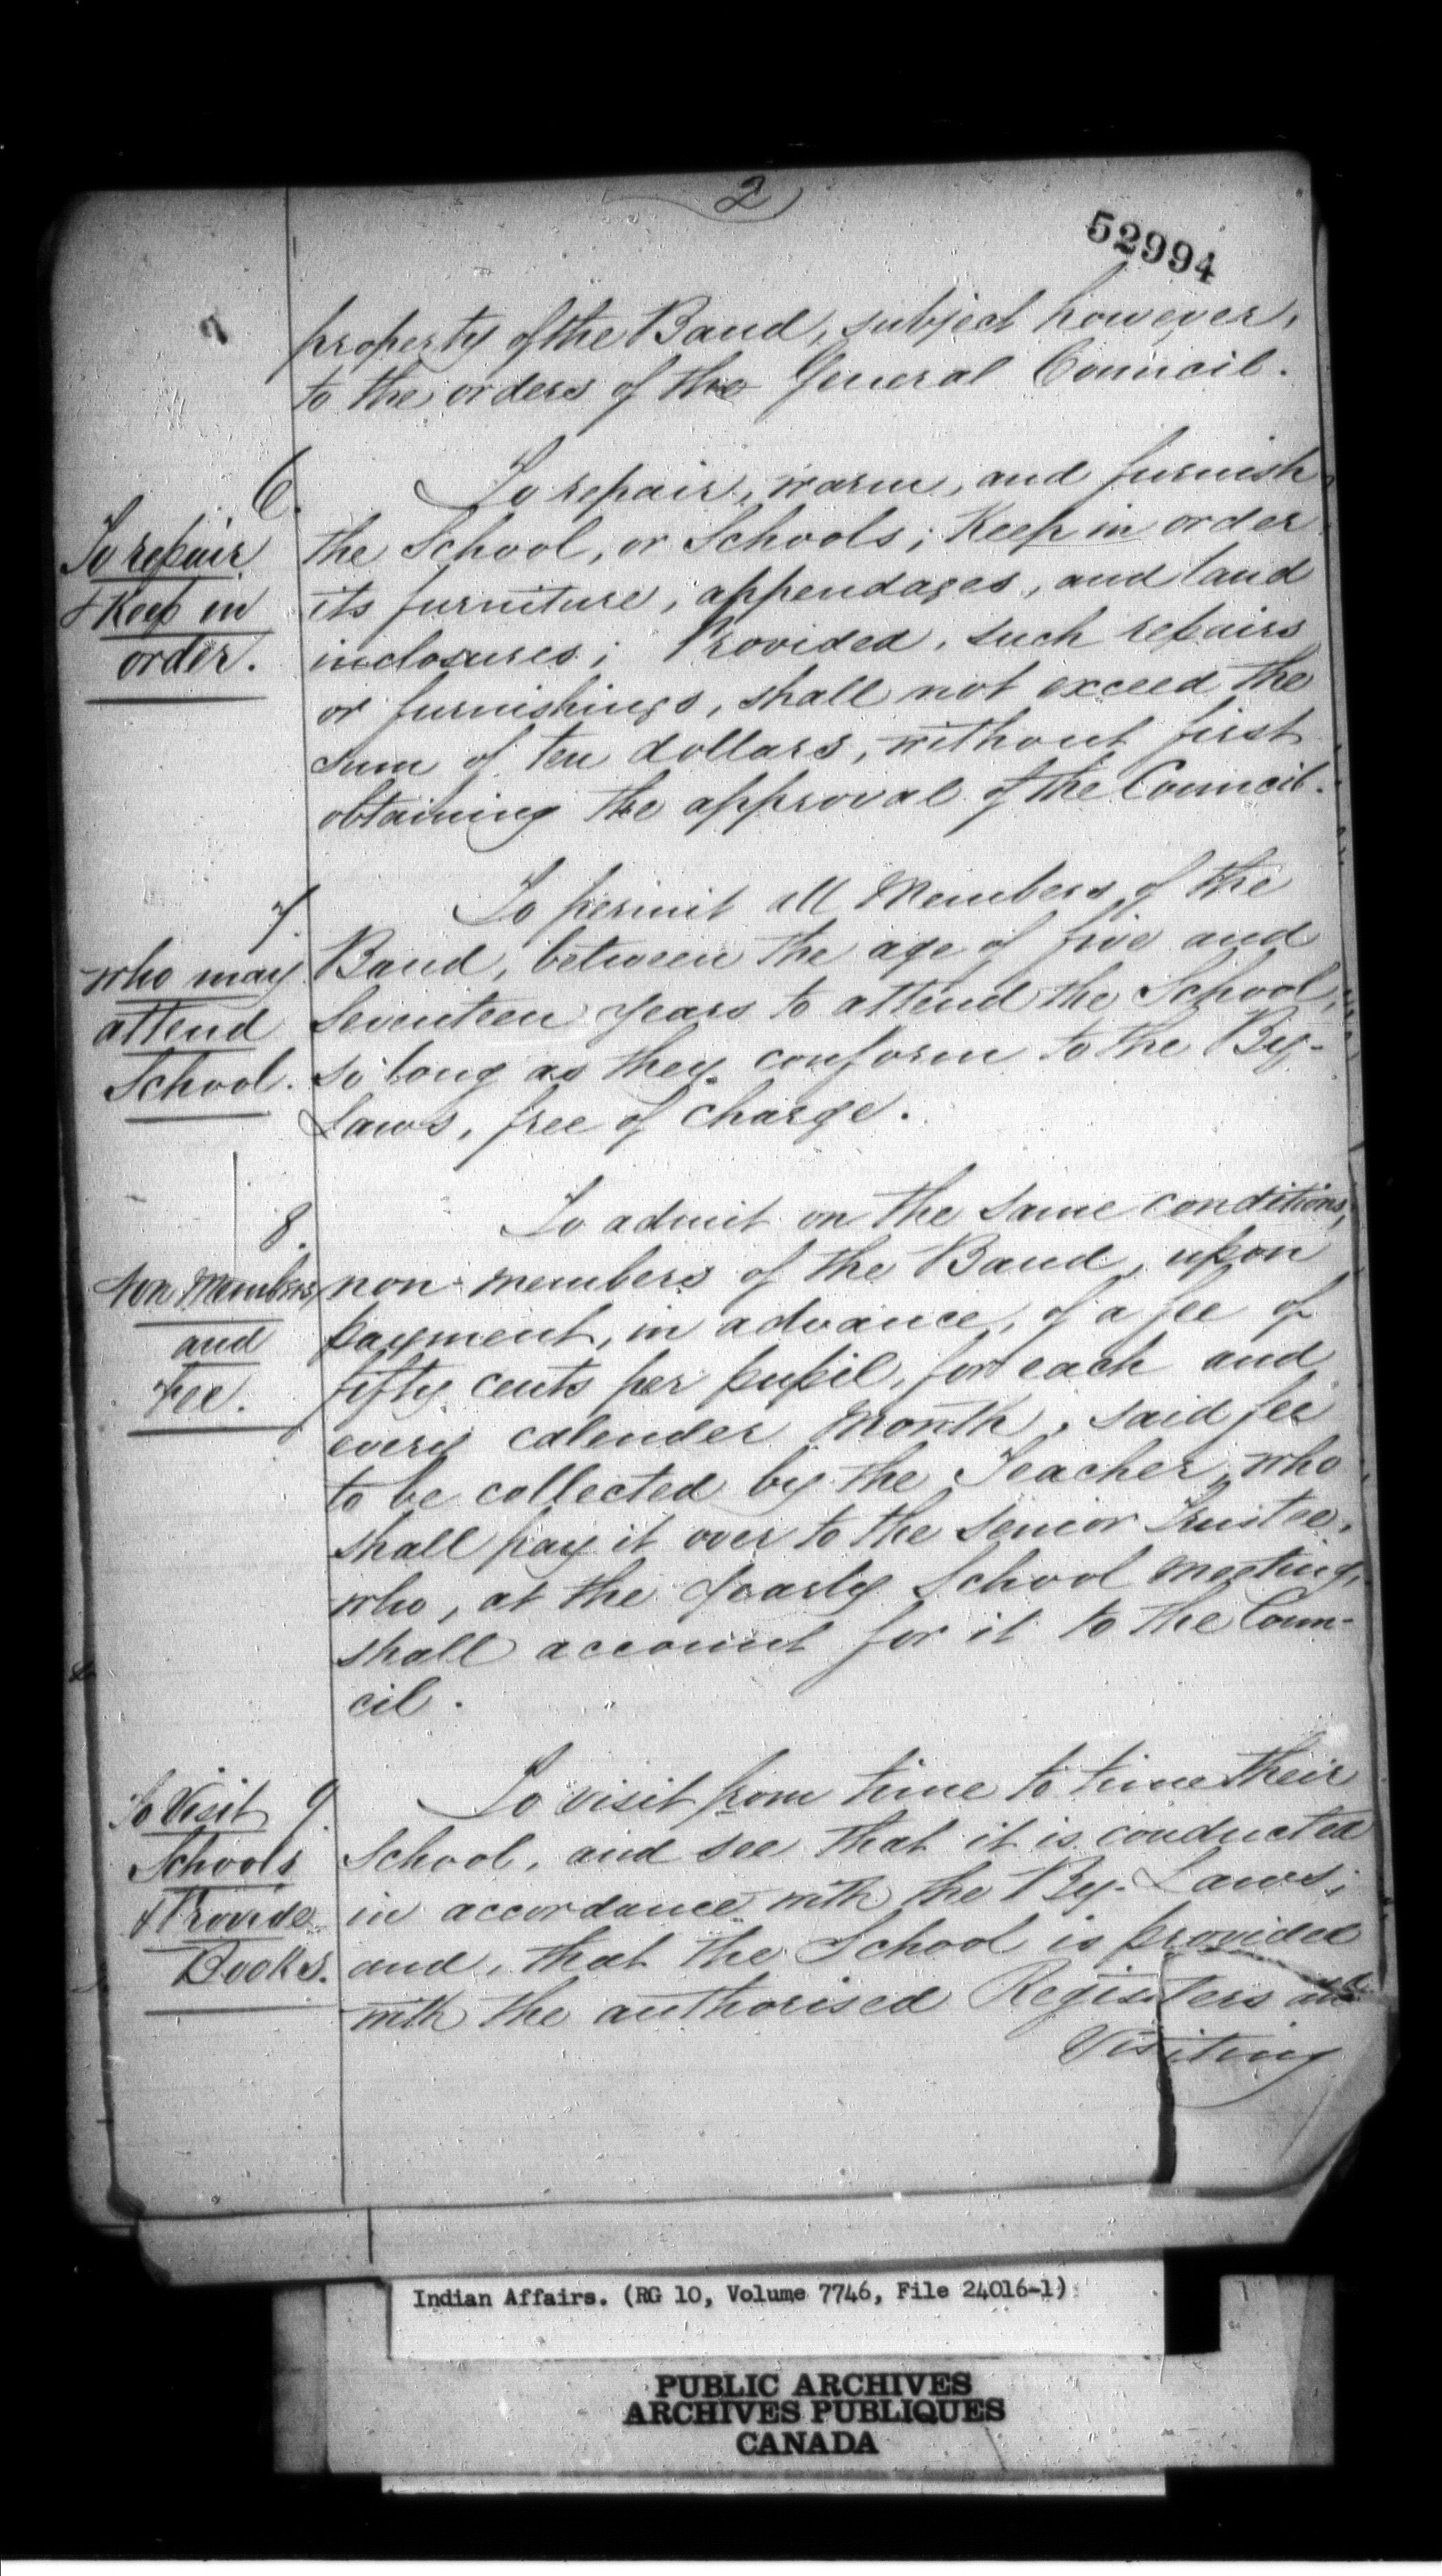 2
52994
property of the Band, subject however,
to the orders of the General Council.
6.
To repair
& Keep in
order.
To repair, warm, and furnish
the School, or Schools; Keep in order
its furniture, appendages, and land
inclosures; Provided, such repairs
or furnishings, shall not exceed the
sum of ten dollars, without first
obtaining the approval of the Council.
7.
who may
attend
School.
To permit all Members of the
Band, between the age of five and
Seventeen years to attend the School,
so long as they conform to the By-
Laws, free of charge.
8.
Non Members
and
Fee.
To admit on the same conditions,
non-members of the Band, upon
payment, in advance, of a fee of
fifty cents per pupil, for each and
every calender Month, said fee
to be collected by the Teacher, who
shall pay it over to the Senior Trustee,
who, at the yearly School meeting,
shall account for it to the Coun-
cil.
9.
To Visit
Schools
& Provide
Books.
To visit from time to time their
School, and see that it is conducted
in accordance with the By-Laws;
and, that the School is provided
with the authorised Registers and
Visiting
Indian Affairs. (RG 10, Volume 7746, File 24016-1)
PUBLIC ARCHIVES
ARCHIVES PUBLIQUES
CANADA